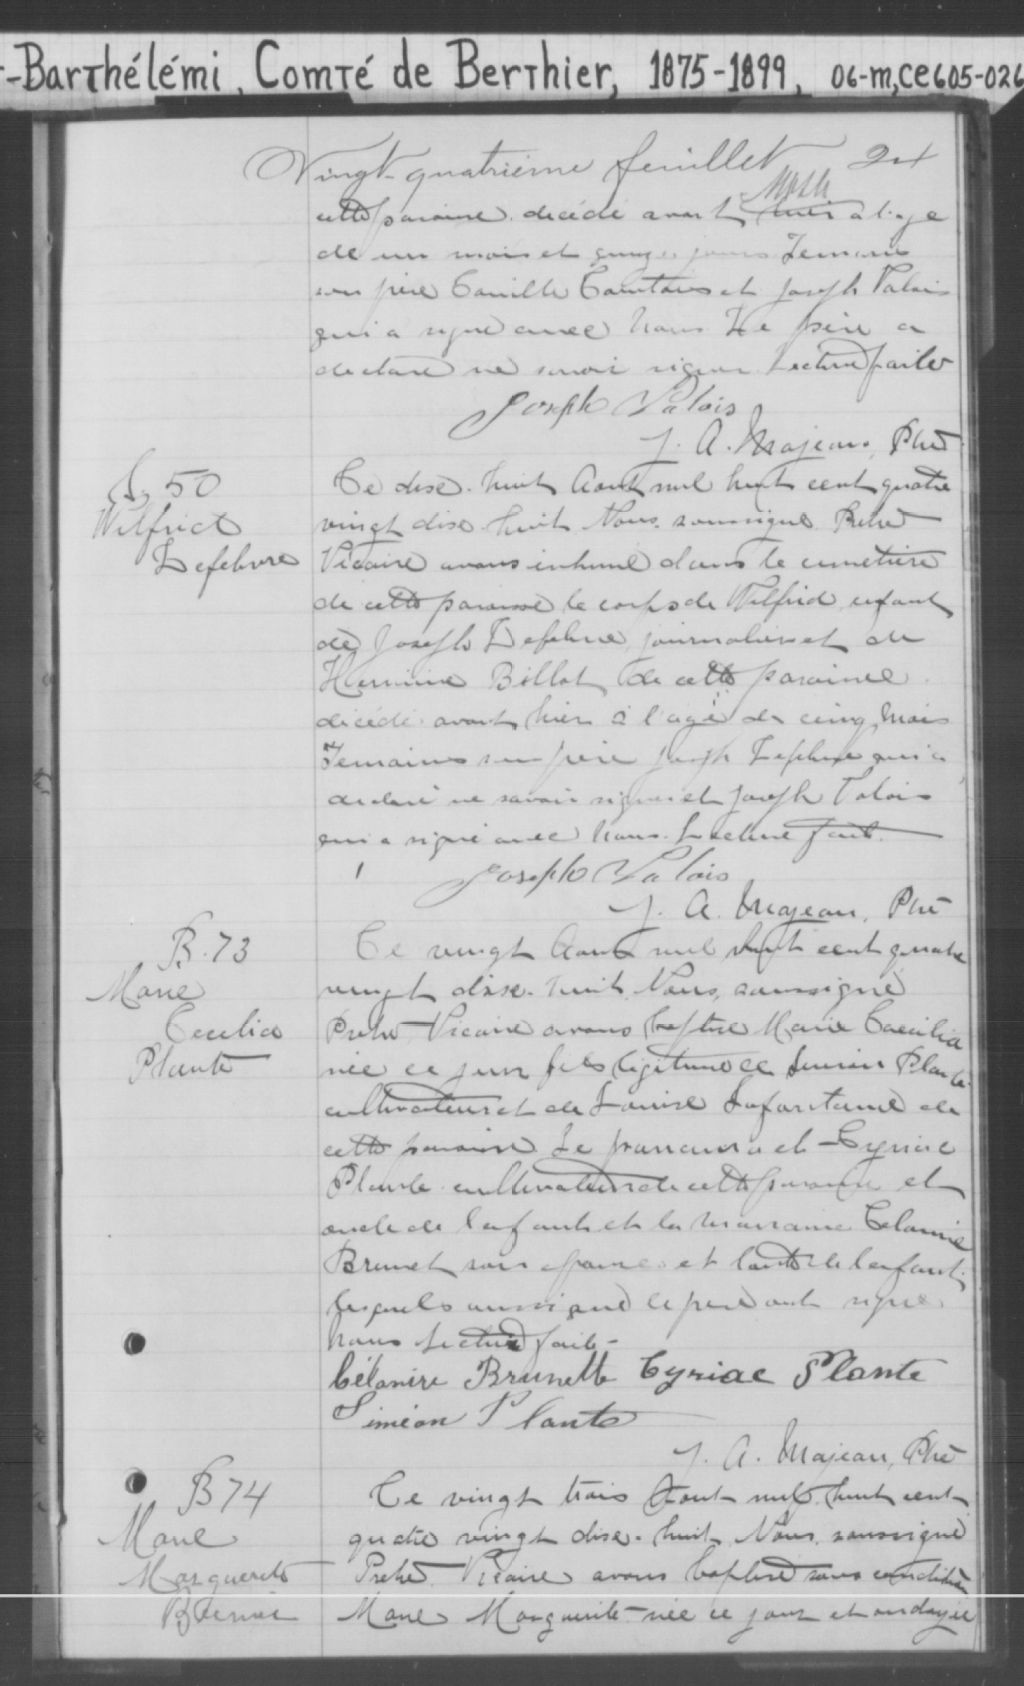 -Barthélémi, Comté de Berthier, 1875-1899, 06-m,CE605-026
Vingt-quatrième feuillet 24
cette paroisse décédé avant hier à l'age
de un mois et jours Temoins
son père Camille et Joseph Valois
qui a signé avec Nous Le père a
declaré ne savoir signer Lecture faite
Joseph Valois
J. A. Majeau, Ptre
S. 50
Wilfrid
Lefebvre
Ce dix-huit Aout mil huit cent quatre
vingt dix-huit Nous soussigné Pretre
Vicaire avons inhumé dans le cimetière
de cette paroisse le corps de Wilfrid enfant
de Joseph Lefebvre journalier et de
Hermine Billot de cette paroisse
décédé avant hier à l'age de cinq mois
Temoins son père Joseph Lefebvre qui a
declaré ne savoir signer et Joseph Valois
qui a signé avec Nous. Lecture faite.
Joseph Valois
J. A. Majeau, Ptre
B. 73
Marie
Cecilia
Plante
Ce vingt Aout mil huit cent quatre
vingt dix-huit Nous, soussigné
Pretre Vicaire avons baptisé Marie Caecilia
née ce jour fils légitime de Simeon Plante
cultivateur et de Louise Lafontaine de
cette paroisse Le parrain a été Cyriac
Plante cultivateur de cette paroisse et
oncle de l'enfant et la marraine Celanire
Brunet son épouse et tante de l'enfant
lesquels aussi que le père ont signé
Nous Lecture faite-
Célanire Brunette Cyriac Plante
Siméon Plante
J. A. Majeau, Ptre
B 74
Marie
Marguerite
Ce vingt trois Aout mil huit cent
quatre vingt dix-huit Nous soussigné
Pretre Vicaire avons baptisé sous condition
Marie Marguerite née ce jour et ondoyée